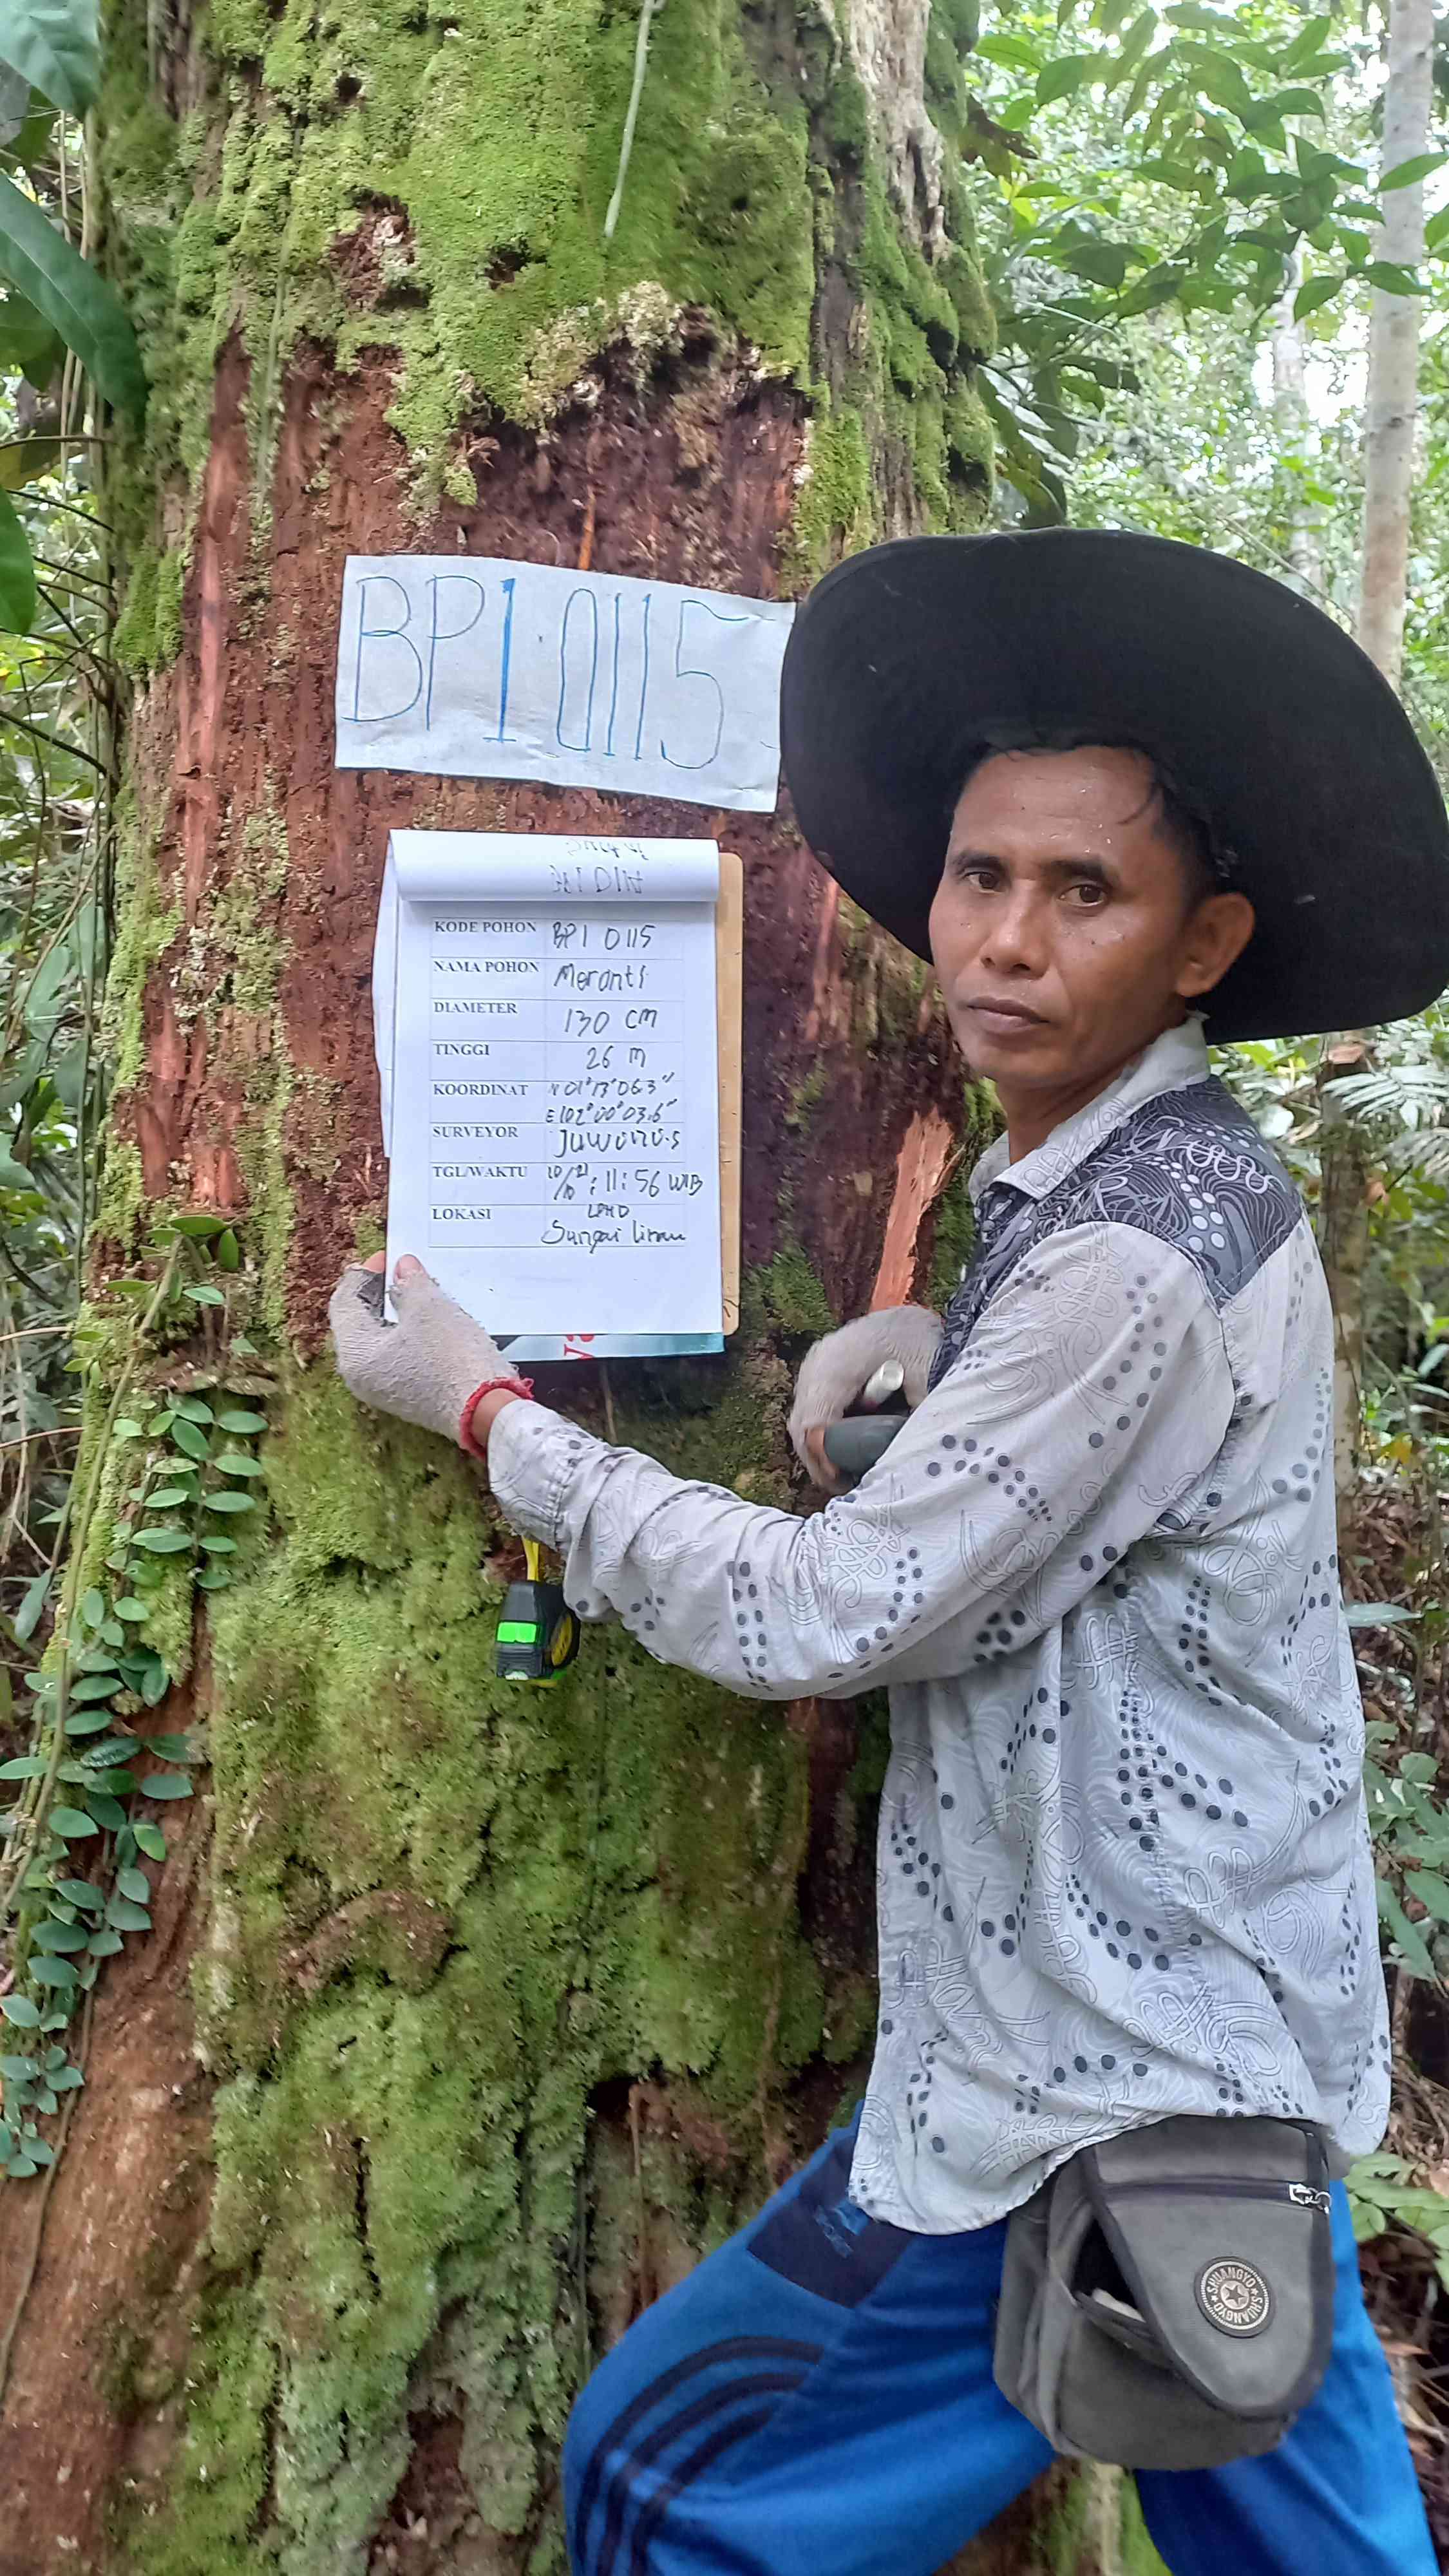 BP1 0115
KODE POHON BP1 0115
NAMA POHON Meranti
DIAMETER 130 cm
TINGGI 26 m
KOORDINAT N 01°13'06.3"
E 102°00'03.6"
SURVEYOR Juwono.S
TGL/WAKTU 10/10 21 : 11 : 56 WIB
LOKASI LPHD
Sungai Linau
SHUANGYO SHUANGYO